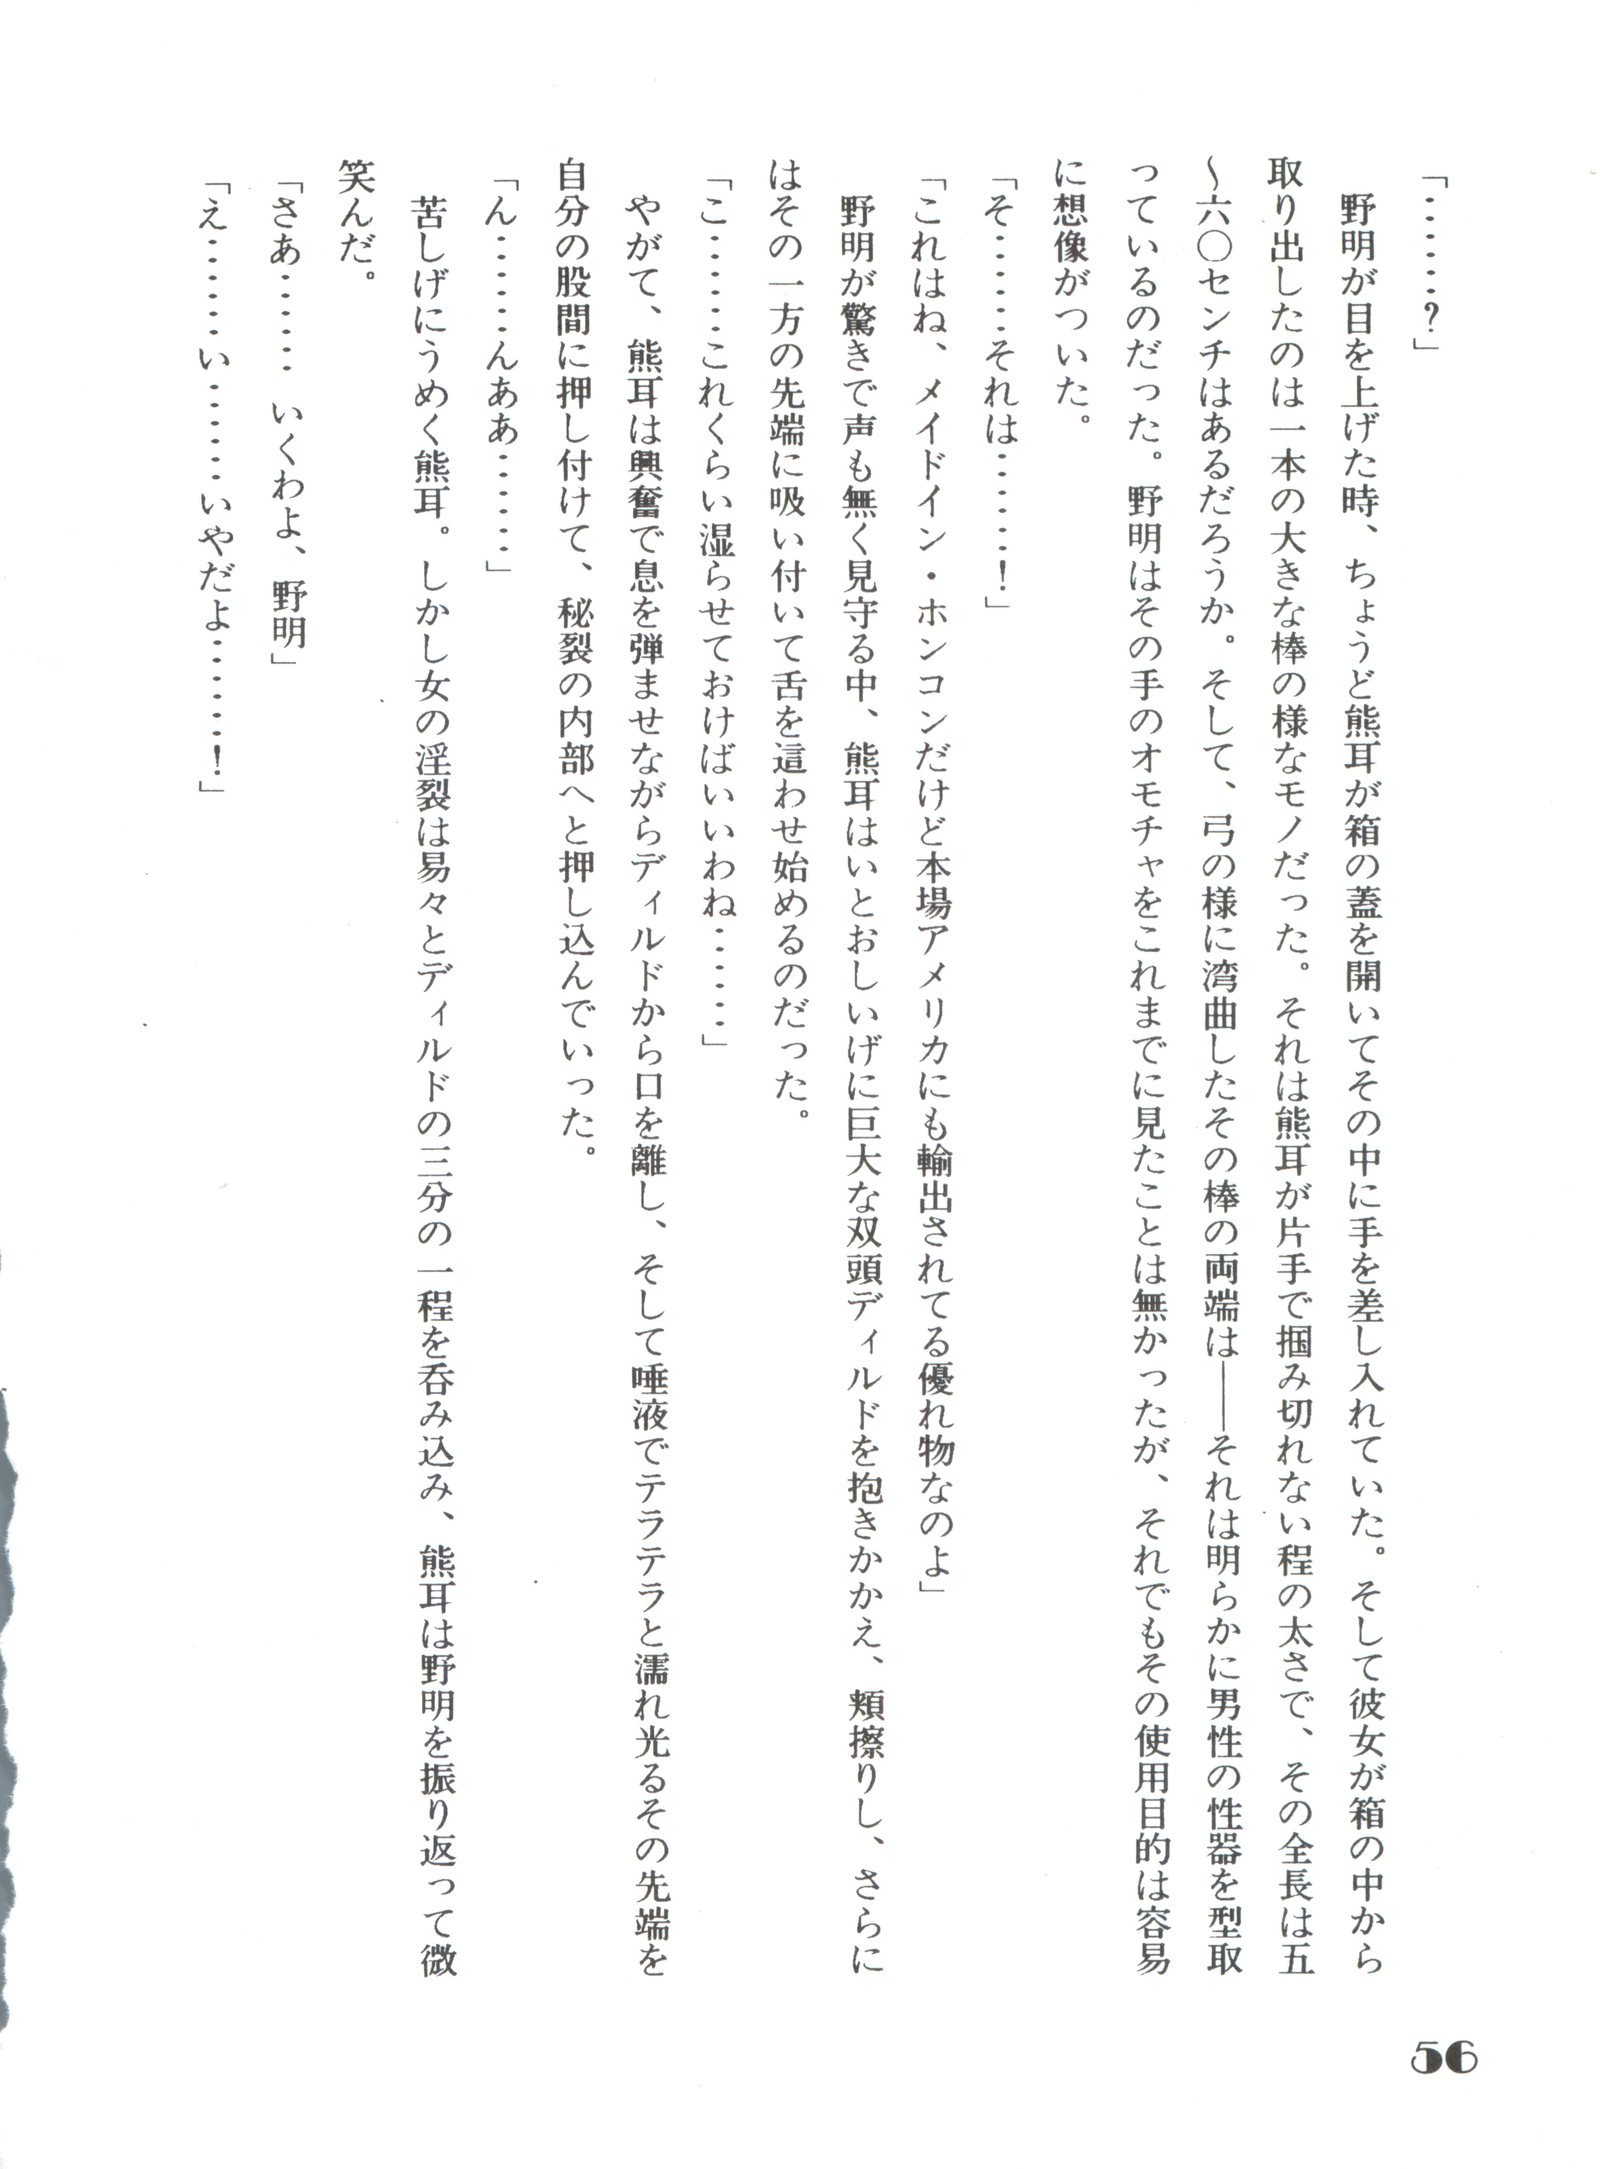 「‥‥‥?」
　野明が目を上げた時、ちょうど熊耳が箱の蓋を開いてその中に手を差し入れていた。そして彼女が箱の中から
取り出したのは一本の大きな棒の様なモノだった。それは熊耳が片手で掴み切れない程の太さで、その全長は五
〜六〇センチはあるだろうか。そして、弓の様に湾曲したその棒の両端は──それは明らかに男性の性器を型取
っているのだった。野明はその手のオモチャをこれまでに見たことは無かったが、それでもその使用目的は容易
に想像がついた。
「そ‥‥‥それは‥‥‥!」
「これはね、メイドイン・ホンコンだけど本場アメリカにも輸出されてる優れ物なのよ」
　野明が驚きで声も無く見守る中、熊耳はいとおしいげに巨大な双頭ディルドを抱きかかえ、頬擦りし、さらに
はその一方の先端に吸い付いて舌を這わせ始めるのだった。
「こ‥‥‥これくらい湿らせておけばいいわね‥‥‥」
　やがて、熊耳は興奮で息を弾ませながらディルドから口を離し、そして唾液でテラテラと濡れ光るその先端を
自分の股間に押し付けて、秘裂の内部へと押し込んでいった。
「ん‥‥‥んああ‥‥‥」
　苦しげにうめく熊耳。しかし女の淫裂は易々とディルドの三分の一程を呑み込み、熊耳は野明を振り返って微
笑んだ。
「さあ‥‥‥ いくわよ、野明」
「え‥‥‥い‥‥‥いやだよ‥‥‥!」
56